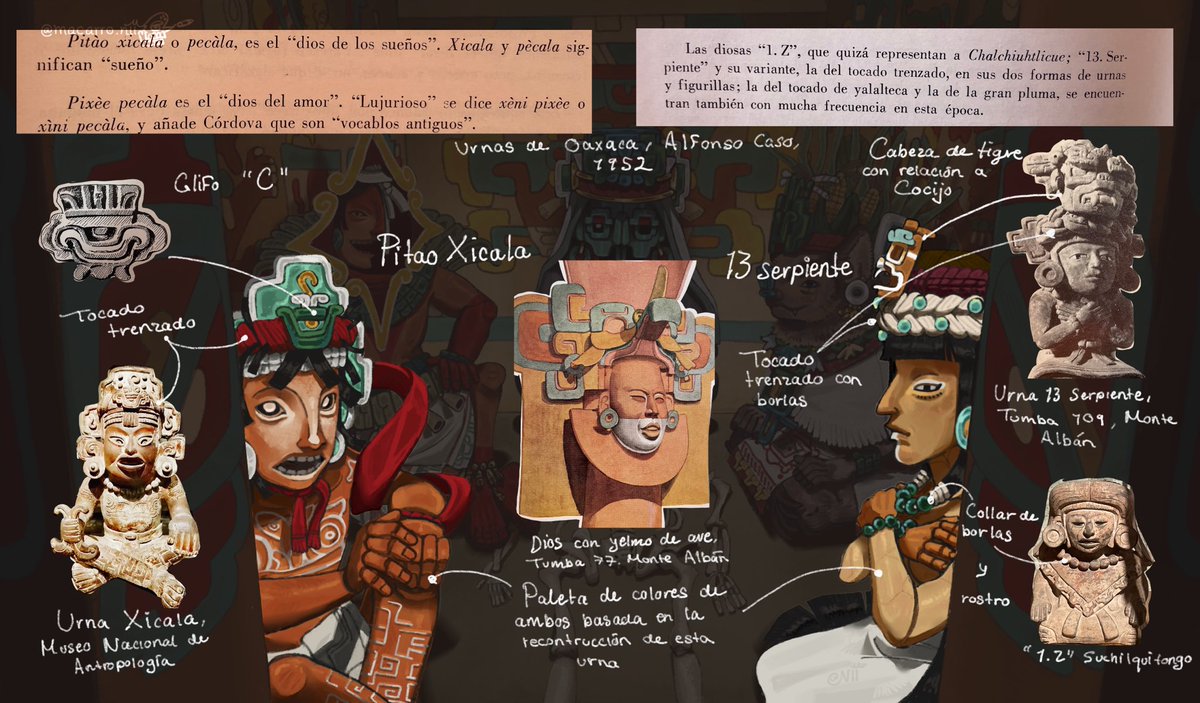 @macarro.nii
Pitào xicala o pecàla, es el “dios de los sueños”. Xicala y pècala sig-
nifican “sueño”.
Pixèe pecàla es el “dios del amor”. “Lujurioso” se dice xèni pixèe o
xìni pecàla, y añade Córdova que son “vocablos antiguos”.
Las diosas “1. Z”, que quizá representan a Chalchiuhtlicue; “13. Ser-
piente” y su variante, la del tocado trenzado, en sus dos formas de urnas
y figurillas; la del tocado de yalalteca y la de la gran pluma, se encuen-
tran también con mucha frecuencia en esta época.
Urnas de Oaxaca, Alfonso Caso,
1952
Glifo "C"
Pitao Xicala
Tocado
trenzado
Urna Xicala,
Museo Nacional de
Antropología
Dios con yelmo de ave,
Tumba 77, Monte Albán
Paleta de colores de
ambos basada en la
recontrucción de esta
urna
13 serpiente
Cabeza de tigre
con relación a
Cocijo
Tocado
trenzado con
borlas
Urna 13 Serpiente,
Tumba 709, Monte
Albán
Collar de
borlas
y
rostro
"1.Z" Suchilquitongo
@NII